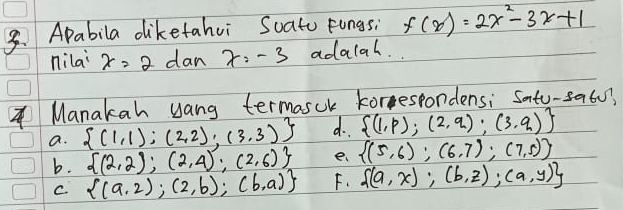 3. Apabila diketahui Suatu Fungsi f(x) = 2x² - 3x + 1
nilai x = 2 dan x = -3 adalah...
4 Manakah yang termasuk korespondensi satu-satu?
a. {(1,1); (2,2); (3,3)} d. {(1,P); (2,q); (3,q)}
b. {(2,2); (2,4); (2,6)} e. {(5,6); (6,7); (7,5)}
c. {(a,2); (2,b); (b,a)} F. {(a,x); (b,z); (a,y)}